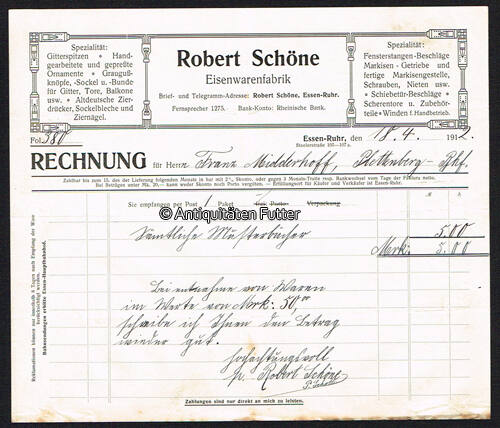 Spezialität:
Gitterspitzen ❖ Hand-
gearbeitete und gepreßte
Ornamente ❖ Grauguß-
knöpfe, -Sockel u. -Bunde
für Gitter, Tore, Balkone
usw. ❖ Altdeutsche Zier-
drücker, Sockelbleche und
Ziernägel.
Robert Schöne
Eisenwarenfabrik
Brief- und Telegramm-Adresse: Robert Schöne, Essen-Ruhr.
Fernsprecher 1275. Bank-Konto: Rheinische Bank.
Spezialität:
Fensterstangen-Beschläge
Markisen - Getriebe und
fertige Markisengestelle,
Schrauben, Nieten usw.
❖ Schiebetür-Beschläge ❖
Scherentore u. Zubehör-
teile ❖ Winden f. Handbetrieb.
Fol. 380
Essen-Ruhr, den 18. 4. 1912.
Steelerstraße 105-107 a.
RECHNUNG für Herrn Franz Midderhoff, Plettenberg-Bhf.
Zahlbar bis zum 15. des der Lieferung folgenden Monats in bar mit 2% Skonto, oder gegen 3 Monats-Tratte resp. Bankwechsel vom Tage der Faktura netto.
Bei Beträgen unter Mk. 20,— kann weder Skonto noch Porto vergütet werden. — Erfüllungsort für Käufer und Verkäufer ist Essen-Ruhr.
Sie empfangen per Post 1 Paket Fr. Porto Verpackung
© Antiquitäten Futter
Sämtliche Musterbücher 5.00
Mark: 5.00
Bei entnahme von Waren
im Werte von Mrk: 50.00
schreibe ich Ihnen den Betrag
wieder gut.
Hochachtungsvoll
pp. Robert Schöne
Zahlungen sind nur direkt an mich zu leisten.
Reklamationen können nur innerhalb 8 Tagen nach Empfang der Ware
berücksichtigt werden.
Bahnsendungen erbitte Essen-Hauptbahnhof.